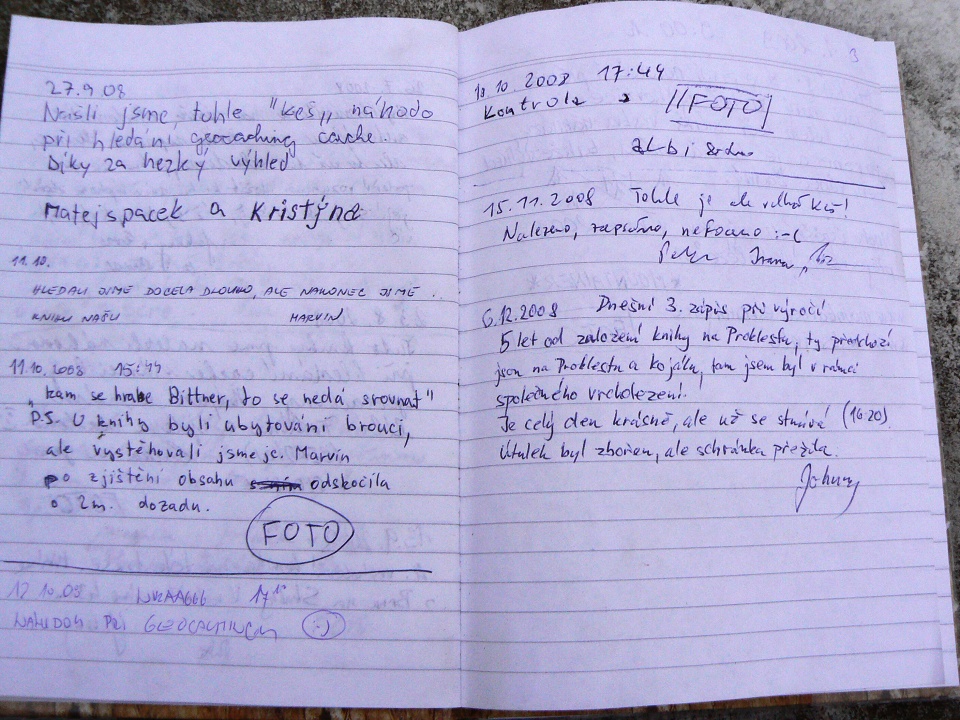 27.9 08
Našli jsme, tuhle "keš„ náhodo
při hledání geocaching cache.
Díky za hezký výhled
Matejspacek a Kristýna
11.10.
HLEDALI JSME DOCELA DLOUHO, ALE NAKONEC JSME
KNIHU NAŠLI MARVIN
11.10.2008 15:44
„kam se hrabe Bittner, to se nedá srovnat"
P.S. U knihy byli ubytování brouci,
ale vystěhovali jsme je. Marvin
po zjištění obsahu odskočila
o 2m. dozadu.
FOTO
12 10 08 17
NAHODOU PŘI GEOCACHINGU :-)
3
10. 2008 17:44
Kontrola FOTO
15.11.2008 Tohle je ale velká Keš!
Nalezeno, zapsáno, nefoceno :-(
Ivana
6.12.2008 Dnešní 3. zápis při výročí
5 let od založení knihy na Proklestu, ty předchozí
jsou na Proklestu a Kojálu, tam jsem byl v rámci
společného vrcholezení.
Je celý den krásně, ale už se stmívá (16:20).
Útulek byl zbořen, ale schránka přežila.
Johny